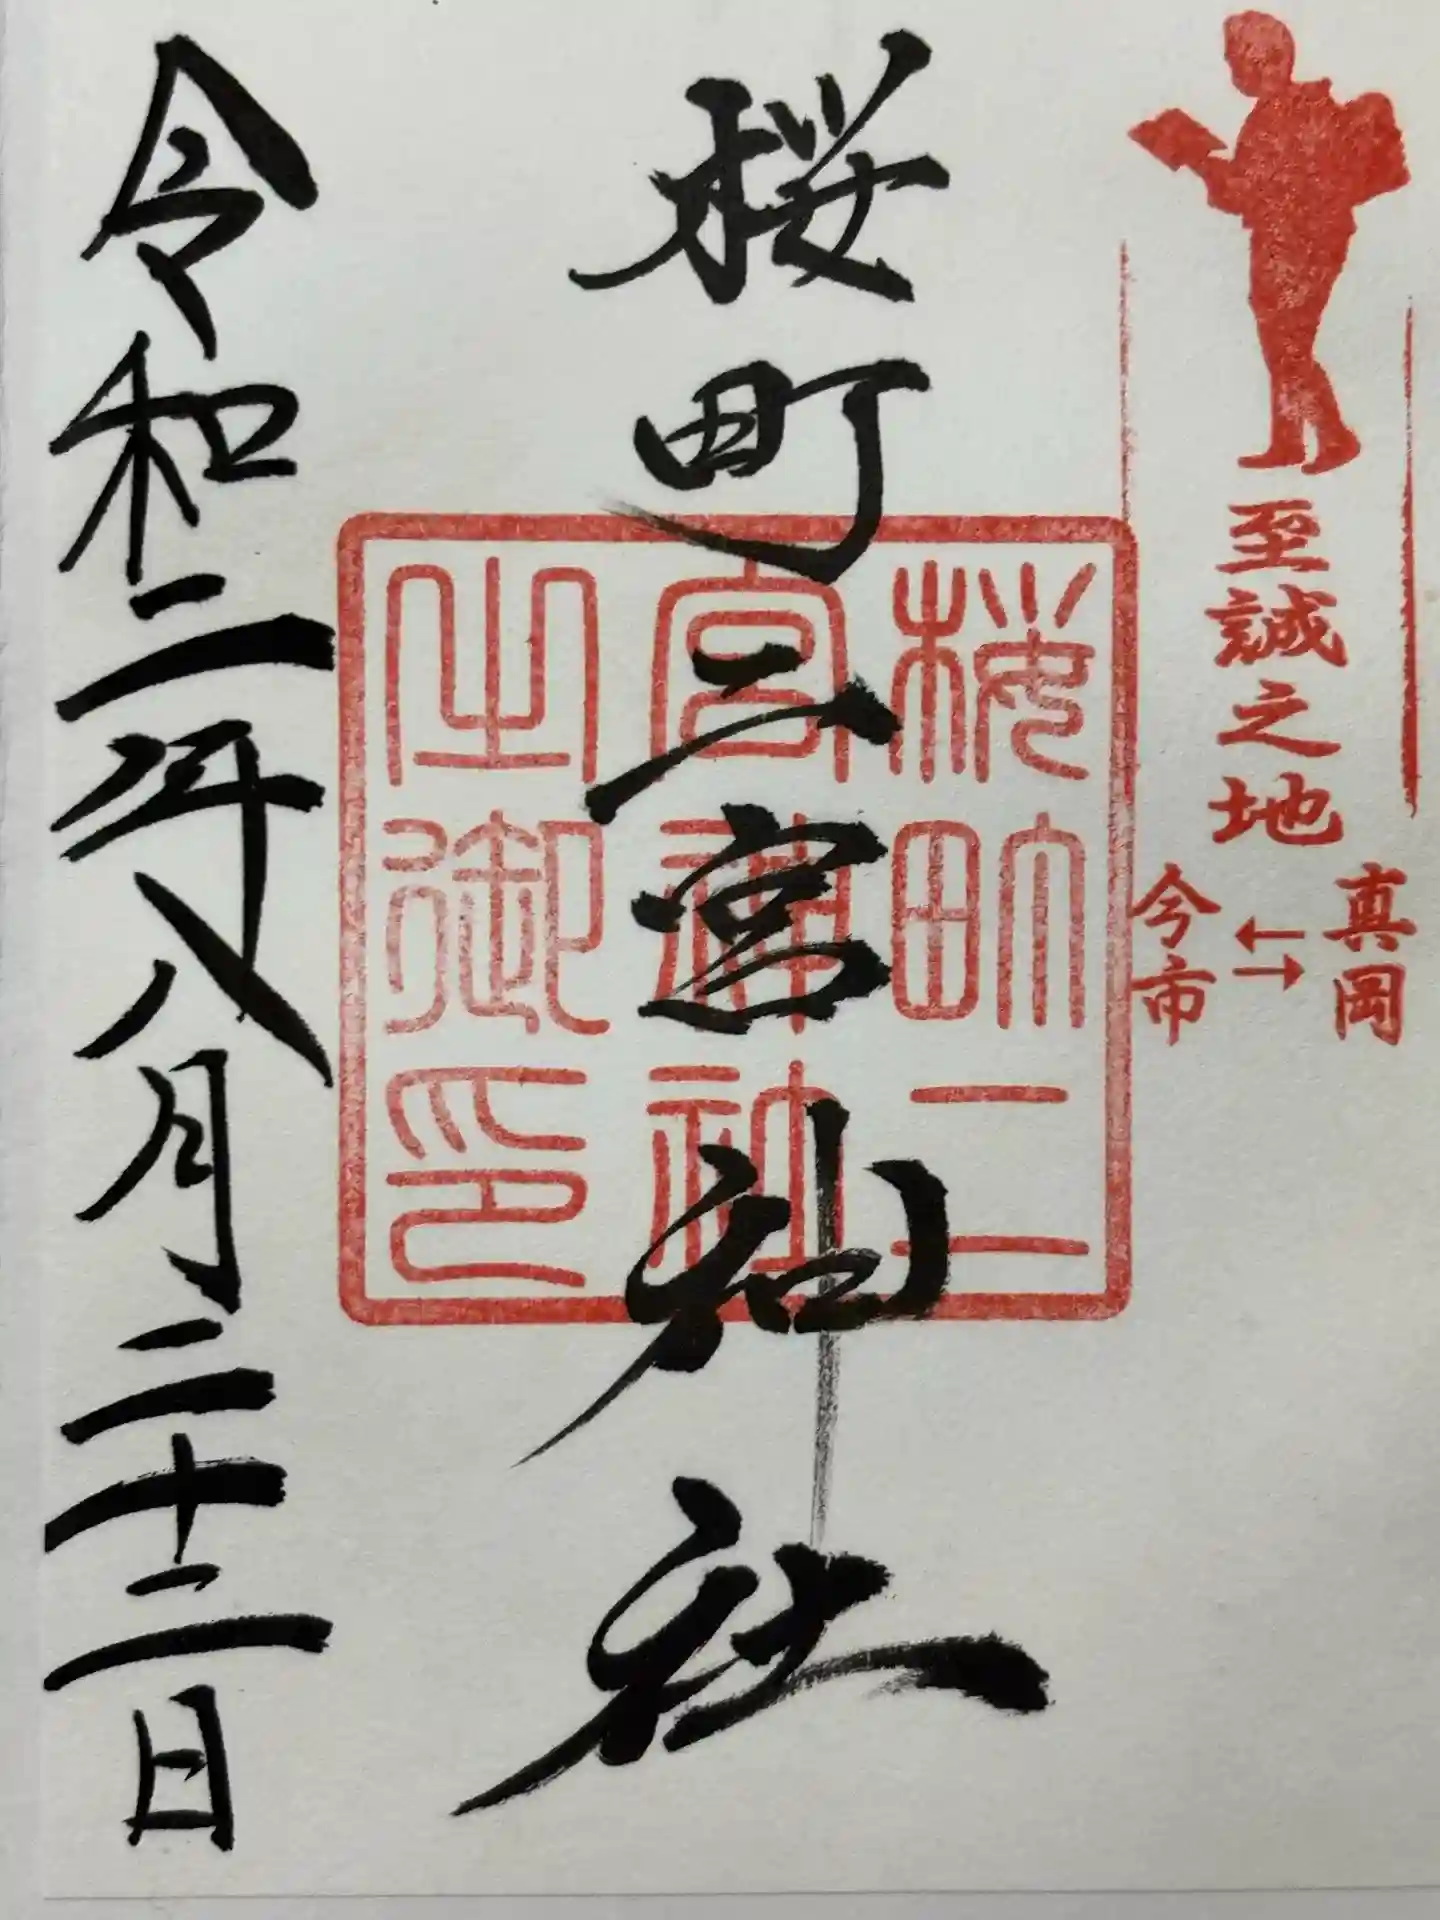 至誠之地
真岡
今市
桜町二宮神社
桜町二
宮神社
之御印
令和二年八月二十二日